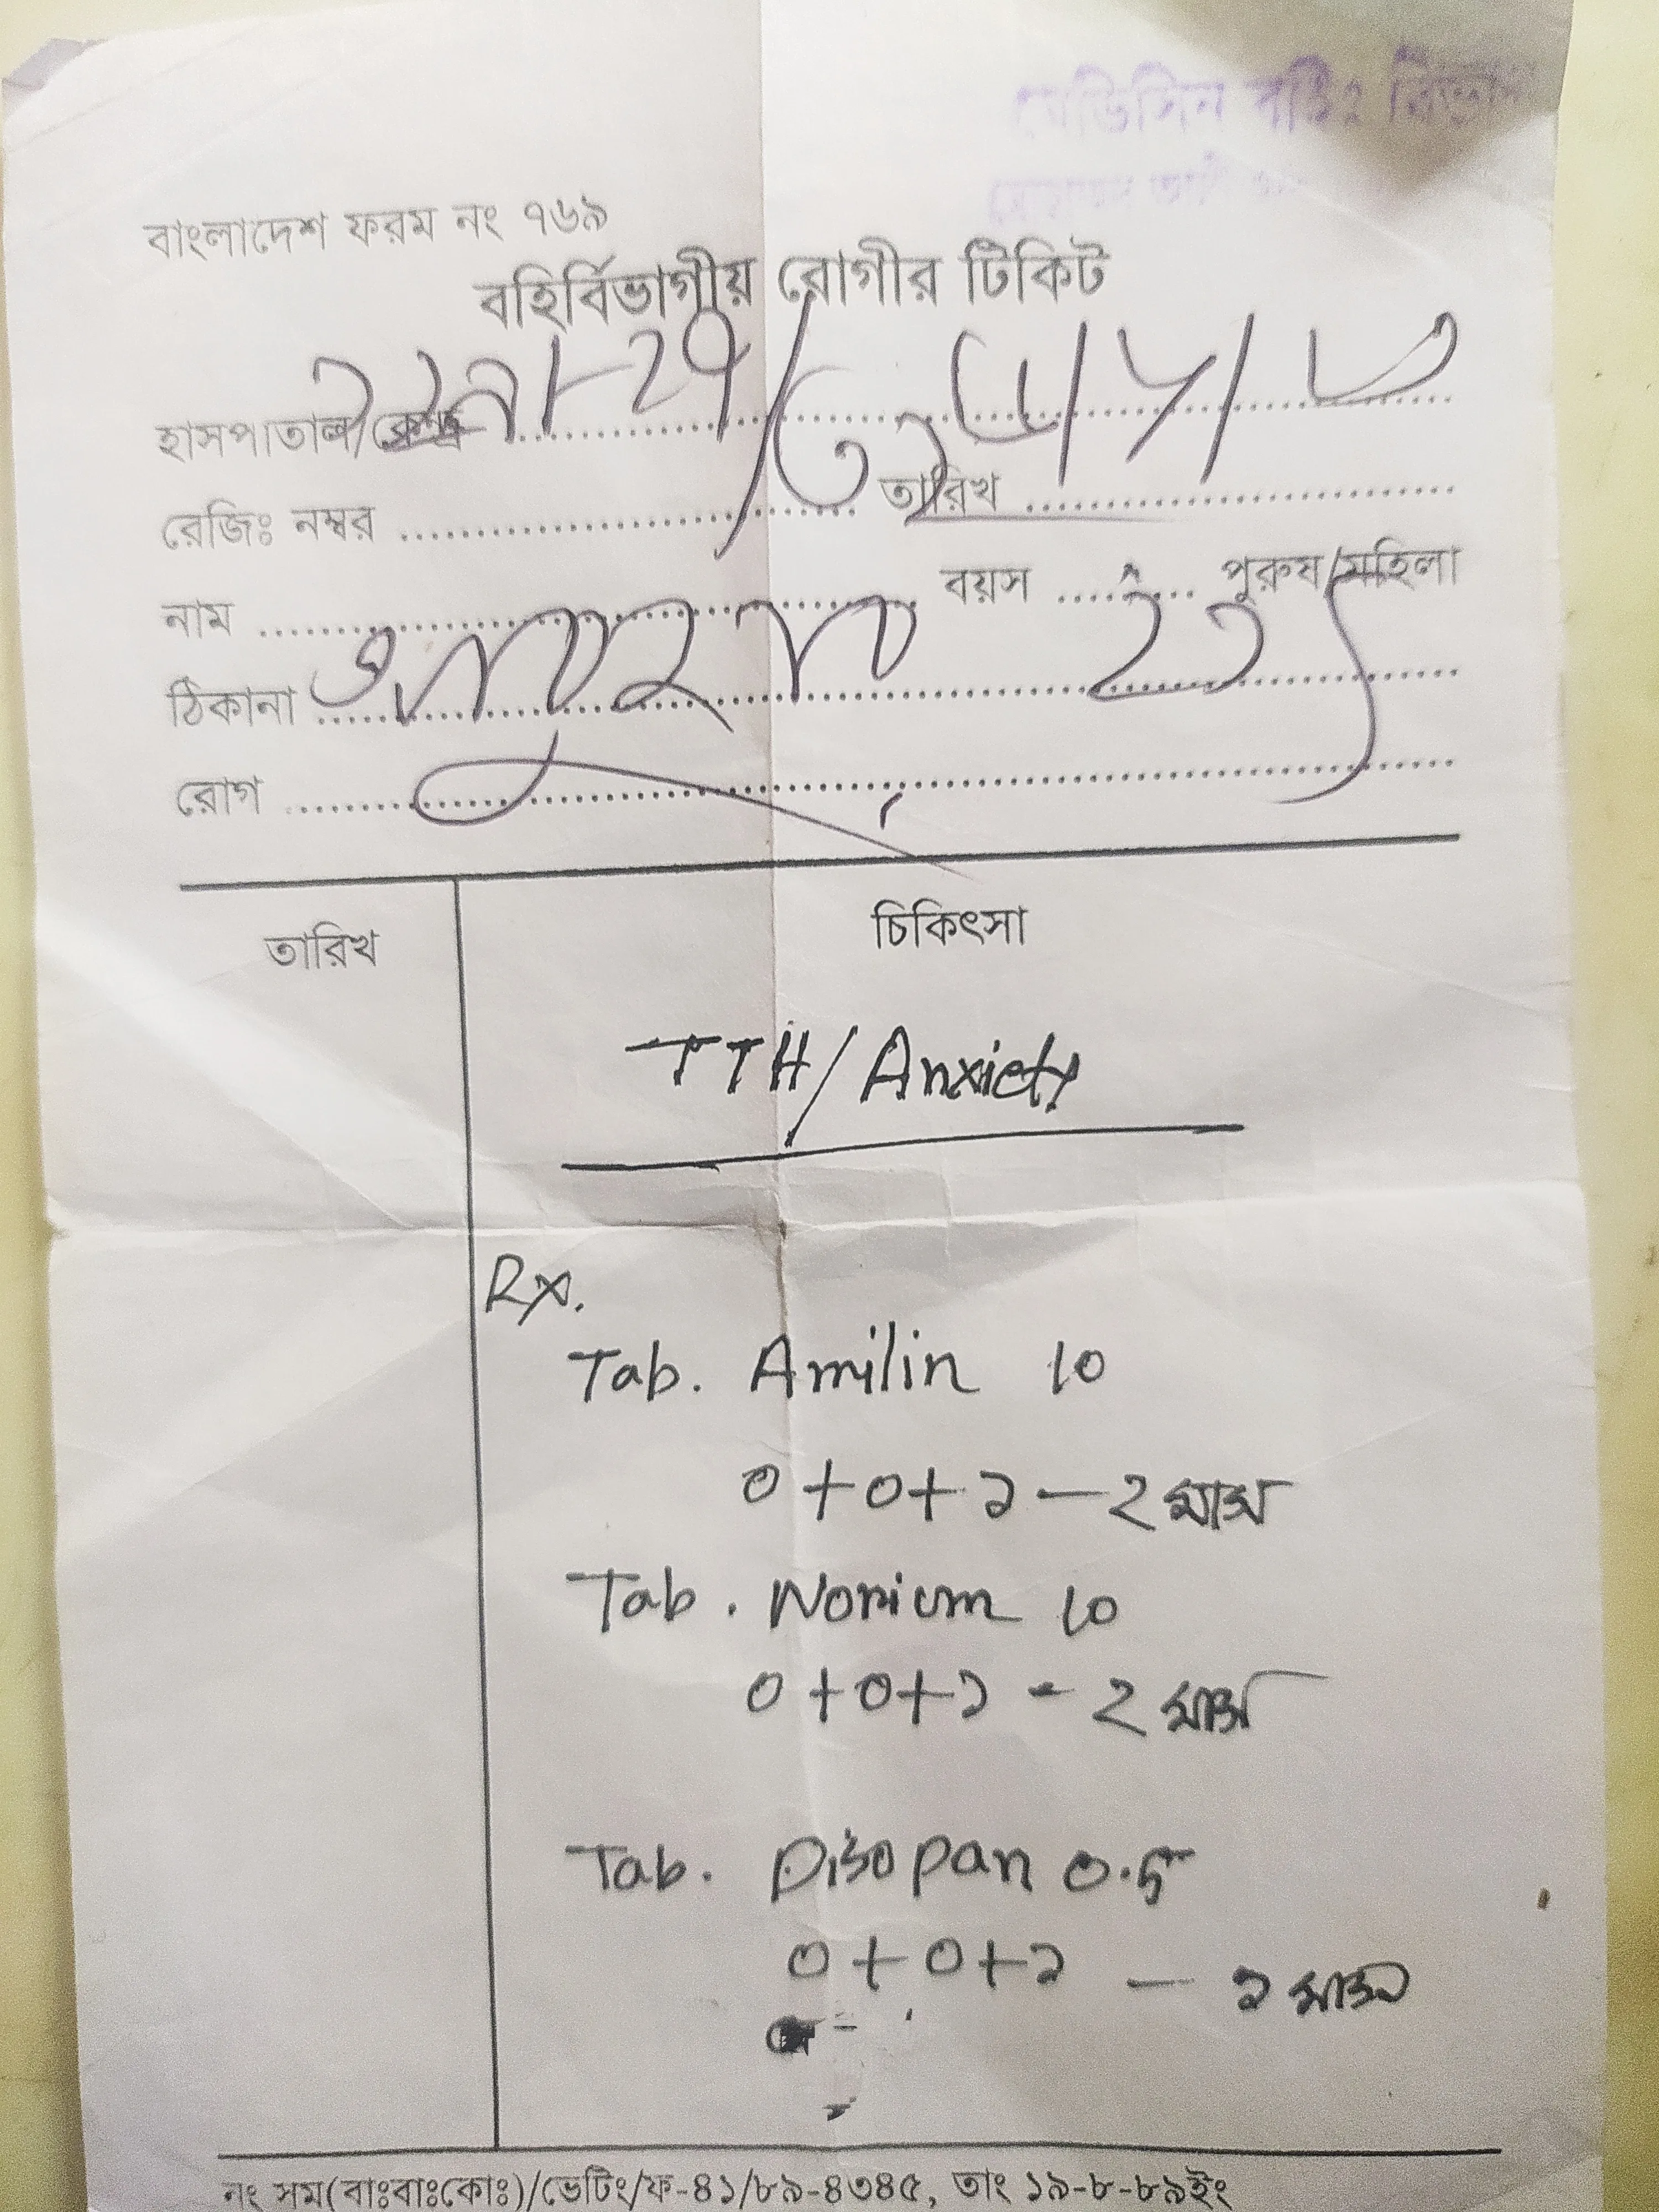 মেডিসিন বহিঃ বিভাগ
বাংলাদেশ ফরম নং ৭৬৯
বহির্বিভাগীয় রোগীর টিকিট
হাসপাতাল/কেন্দ্র
রেজিঃ নম্বর তারিখ
নাম বয়স পুরুষ/মহিলা
ঠিকানা
রোগ
তারিখ চিকিৎসা
TTH/Anxiety
Rx.
Tab. Amilin 10
০+০+১ — ২ মাস
Tab. Norium 10
০+০+১ - ২ মাস
Tab. Disopan 0.5
০+০+১ — ১ মাস
নং সম(বাঃবাঃকোঃ)/ভেটিং/ফ-৪১/৮৯-৪৩৪৫, তাং ১৯-৮-৮৯ইং